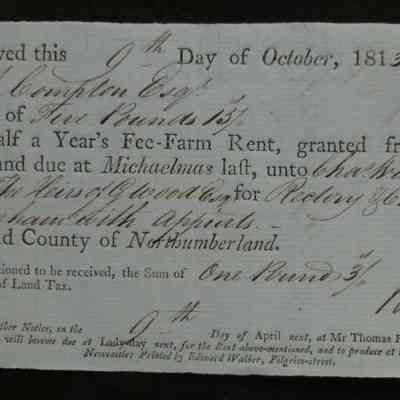 ved this 9th Day of October, 1813
Compton Esqr
of Five Pounds 13/
alf a Year's Fee-Farm Rent, granted fr
and due at Michaelmas last, unto Chas
The Heirs of Gwood Esq for Rectory &
ham with Appurts.
d County of Northumberland.
tioned to be received, the Sum of One Pound 3/
of Land Tax.
ther Notice, on the 9th Day of April next, at Mr Thomas
will become due at Ladyday next, for the Rent above-mentioned, and to produce at
Newcastle: Printed by Edward Walker, Pilgrim-street.